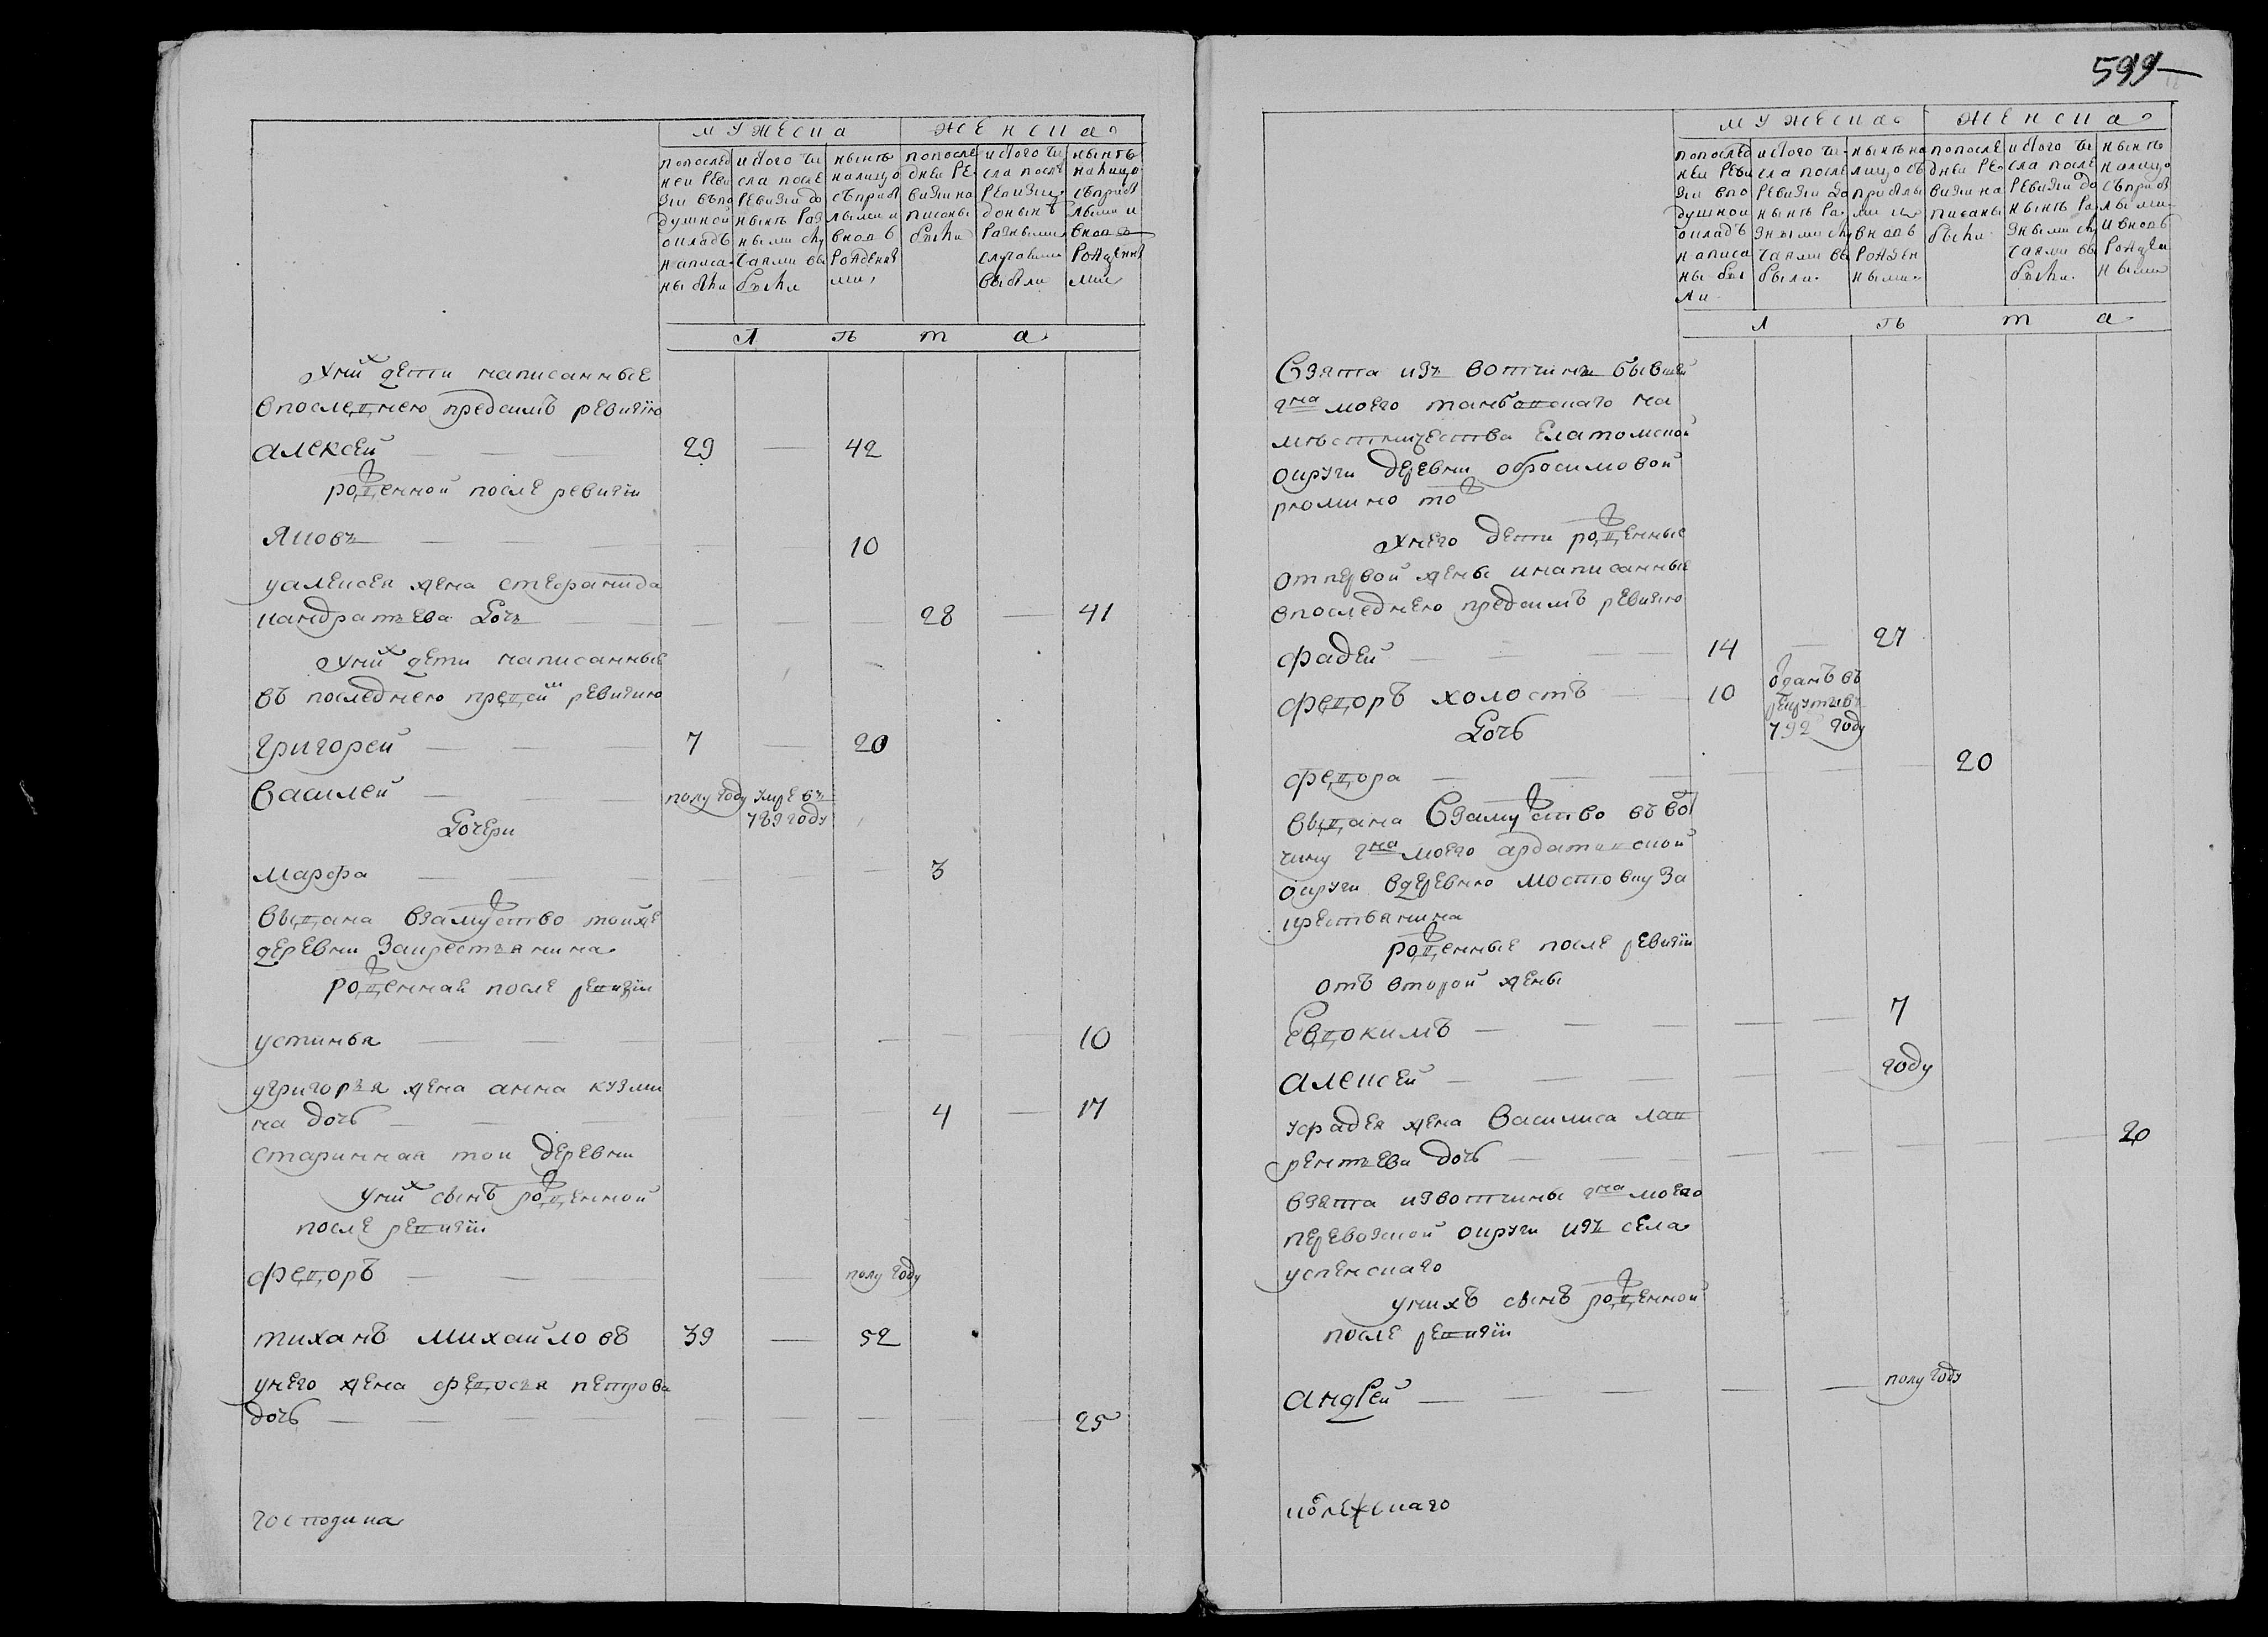 мужеска женска
попослед ней реви зіи въпо душной окладъ написа ны были
ис того чи сла после ревизіи до ныне раз ными слу чаями вы были
ныне на лицо съ прибы лыми и вновь рожденны ми
попосле дней ре визіи на писаны были
ис того чи сла после ревизіи до ныне разными случаями выбыли
ныне на лицо съ прибы лыми и вновь рожденны ми
лѣта
у них дети написанные
в последнею пред симъ ревизїю
алексей 29 — 42
рожденной после ревизїи
яковъ 10
у алексея жена стефанида
кандратьева дочь 28 — 41
у них дети написанные
въ последнею пред сим ревизию
григорей 7 — 20
василей полу году умре въ 789 году
дочери
марфа 3
выдана взамужство той же
деревни за крестьянина
рожденная после ревизїи
устинья 10
у григорья жена анна кузми
на дочь 4 — 17
старинная той деревни
у них сынъ рожденной
после ревизїи
федоръ полу году
тиханъ михайловъ 39 — 52
у него жена федосья петрова
дочь 25
господина
599
мужеска женска
попослед ней реви зіи в по душной окладъ написа ны бы ли
ис того чи сла после ревизіи до ныне ра зными слу чаями вы были
ныне на лицо съ прибылы ми и вновь рожден ными
попосле дней ре визіи на писаны были
ис того чи сла после ревизіи до ныне ра зными слу чаями вы были
ныне на лицо съ прибы лыми и вновь рожден ными
лѣта
взята изъ вотчины бывшей
гна моего танбовскаго на
местничества елатомской
округи деревни обросимовой
рюмино то
у него дети рожденные
от первой жены и написанные
в последнею пред симъ ревизию
фадей 14 — 27
федоръ холостъ 10 отданъ въ рекруты въ 792 году
дочь
федора 20
выдана взамужство въ вот
чину гна моего ардатовской
округи в деревню мостовку за
крестьянина
рожденные после ревизїи
отъ второй жены
евдокимъ 7
алексей году
у фадея жена василиса лав
рентьева дочь 20
взята из вотчины гна моего
перевозской округи изъ села
успенскаго
у нихъ сынъ рожденной
после ревизїи
андрей полу году